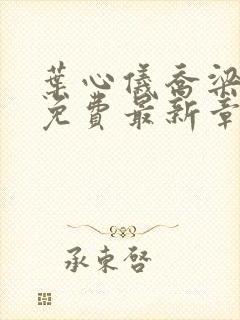 葉心儀喬梁
免費最新章
承东啓